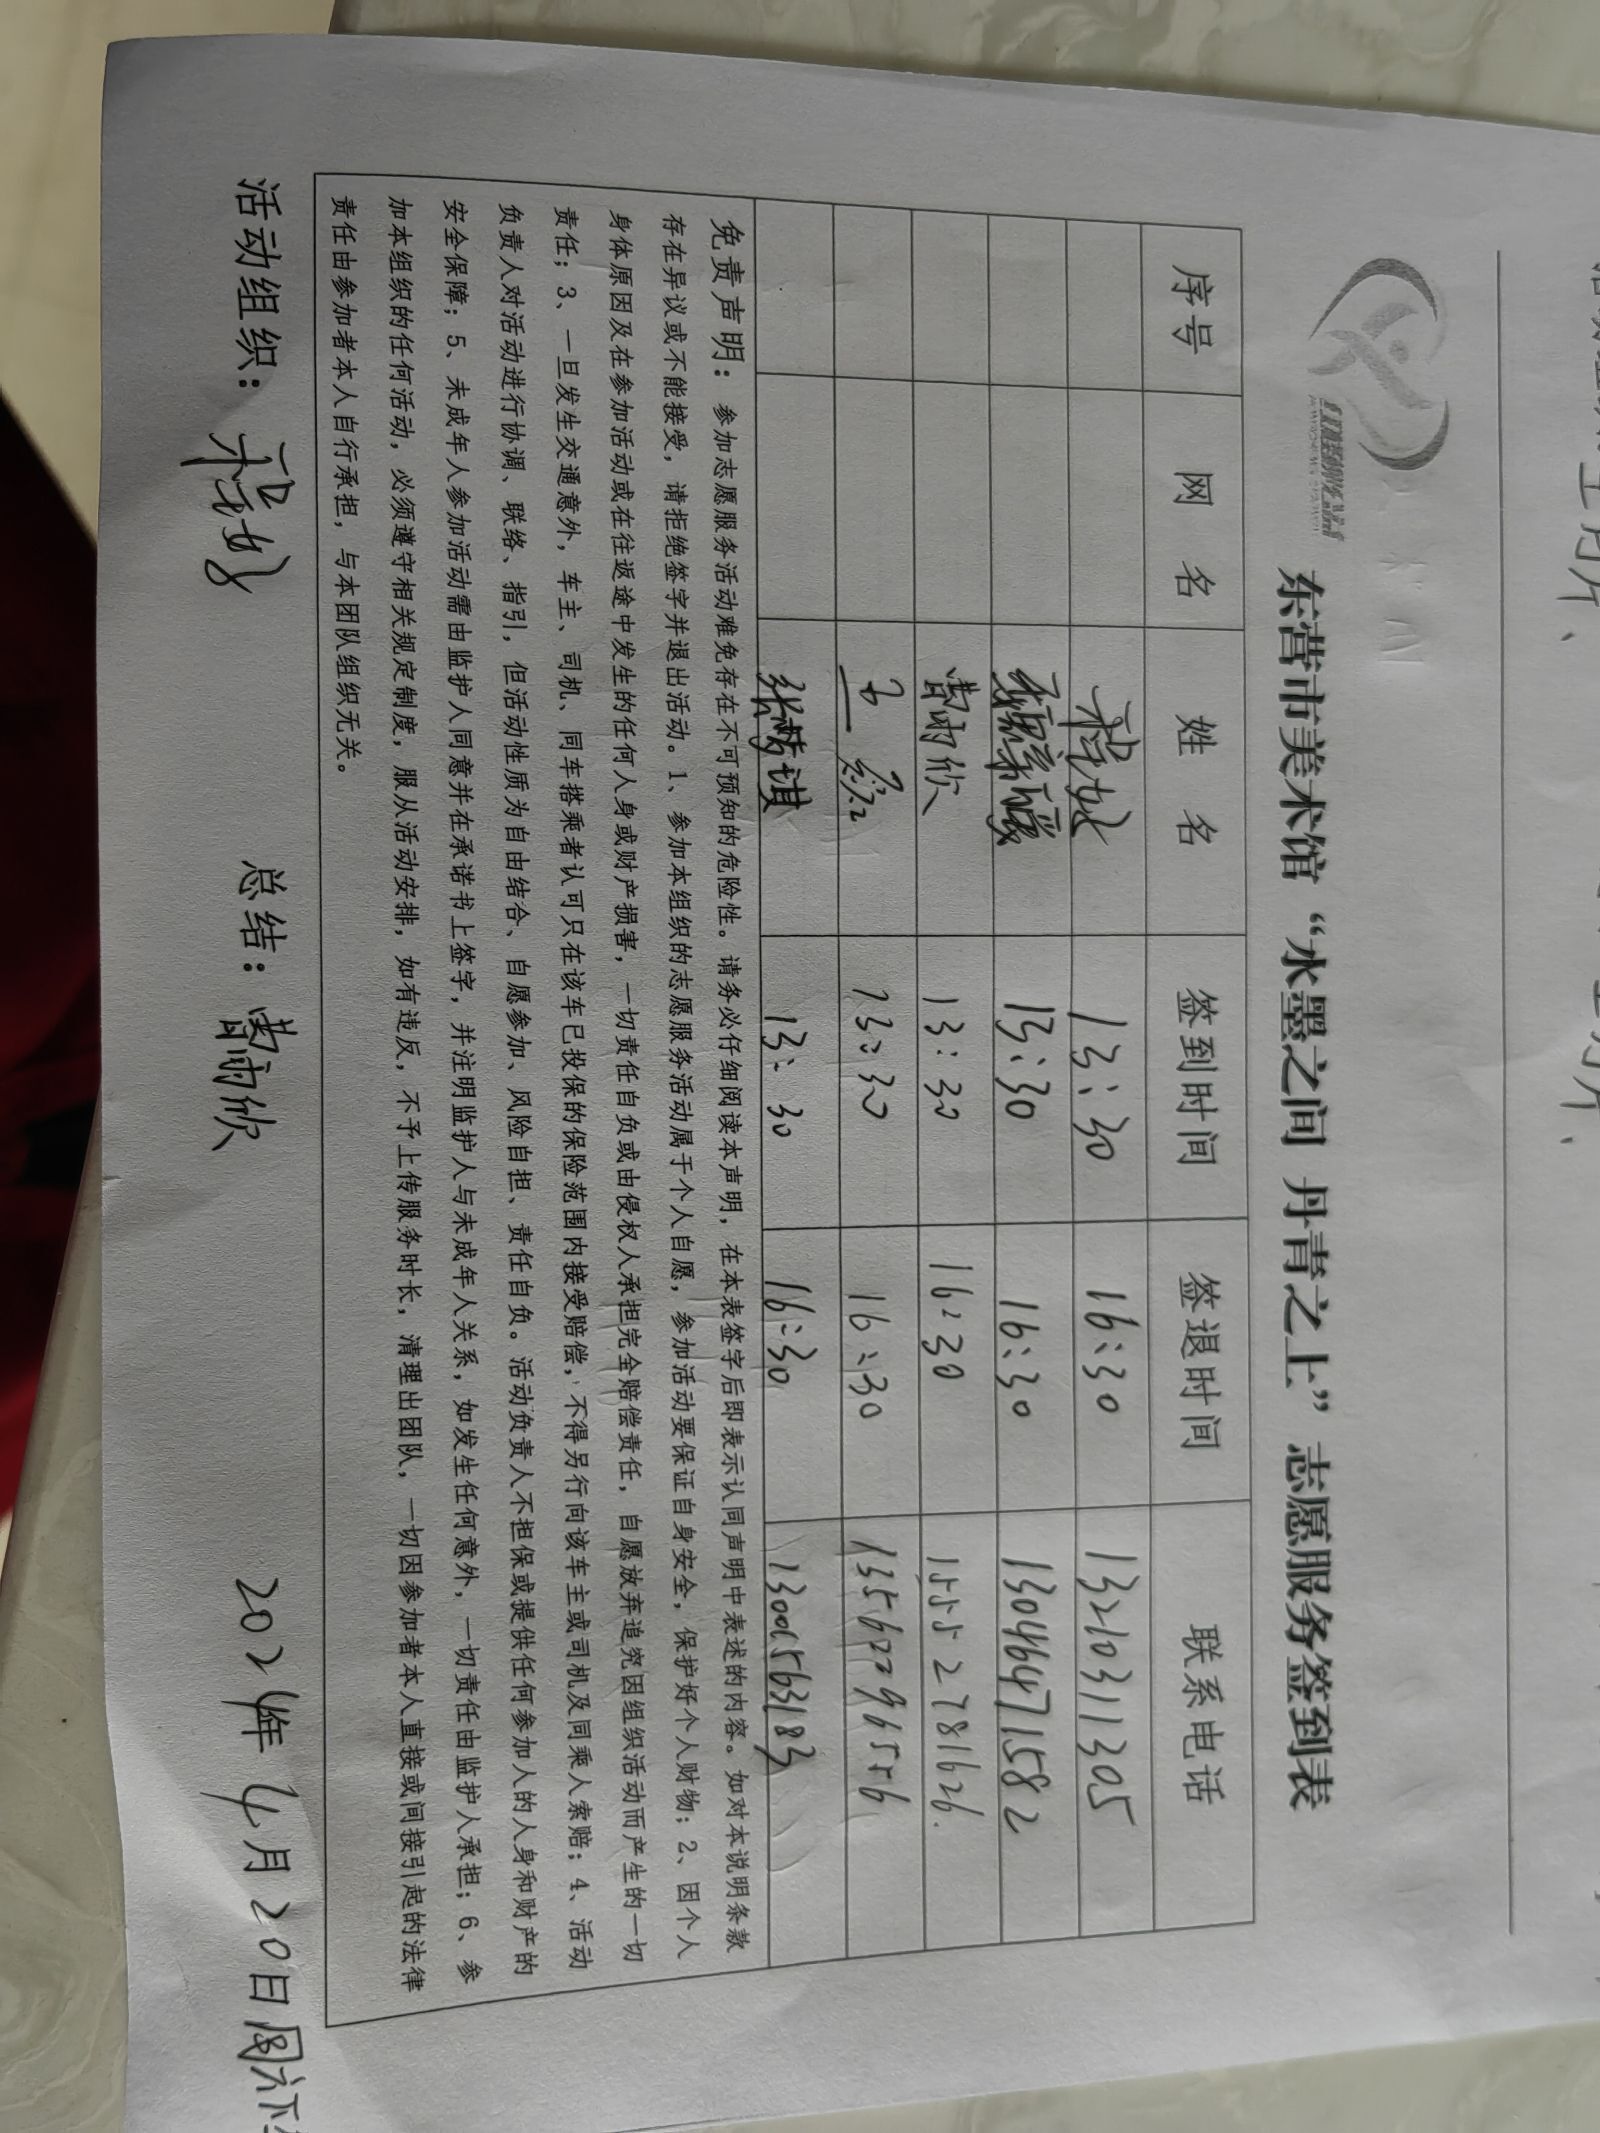 东营市美术馆“水墨之间 丹青之上”志愿服务签到表
序号 网名 姓名 签到时间 签退时间 联系电话
13:30 16:30 13210311305
13:30 16:30 13046471582
曹雨欣 13:30 16:30 15552781626
13:30 16:30 13562296556
张梦琪 13:30 16:30 1300563183
免责声明：参加志愿服务活动难免存在不可预知的危险性。请务必仔细阅读本声明，在本表签字后即表示认同声明中表述的内容。如对本说明条款
存在异议或不能接受，请拒绝签字并退出活动。1、参加本组织的志愿服务活动属于个人自愿，参加活动要保证自身安全，保护好个人财物；2、因个人
身体原因及在参加活动或在往返途中发生的任何人身或财产损害，一切责任自负或由侵权人承担完全赔偿责任，自愿放弃追究因组织活动而产生的一切
责任；3、一旦发生交通意外，车主、司机、同车搭乘者认可只在该车已投保的保险范围内接受赔偿，不得另行向该车主或司机及同乘人索赔；4、活动
负责人对活动进行协调、联络、指引，但活动性质为自由结合、自愿参加、风险自担、责任自负。活动负责人不担保或提供任何参加人的人身和财产的
安全保障；5、未成年人参加活动需由监护人同意并在承诺书上签字，并注明监护人与未成年人关系，如发生任何意外，一切责任由监护人承担；6、参
加本组织的任何活动，必须遵守相关规定制度，服从活动安排，如有违反，不予上传服务时长，清理出团队，一切因参加者本人直接或间接引起的法律
责任由参加者本人自行承担，与本团队组织无关。
活动组织： 总结：曹雨欣 2024年4月20日周六下